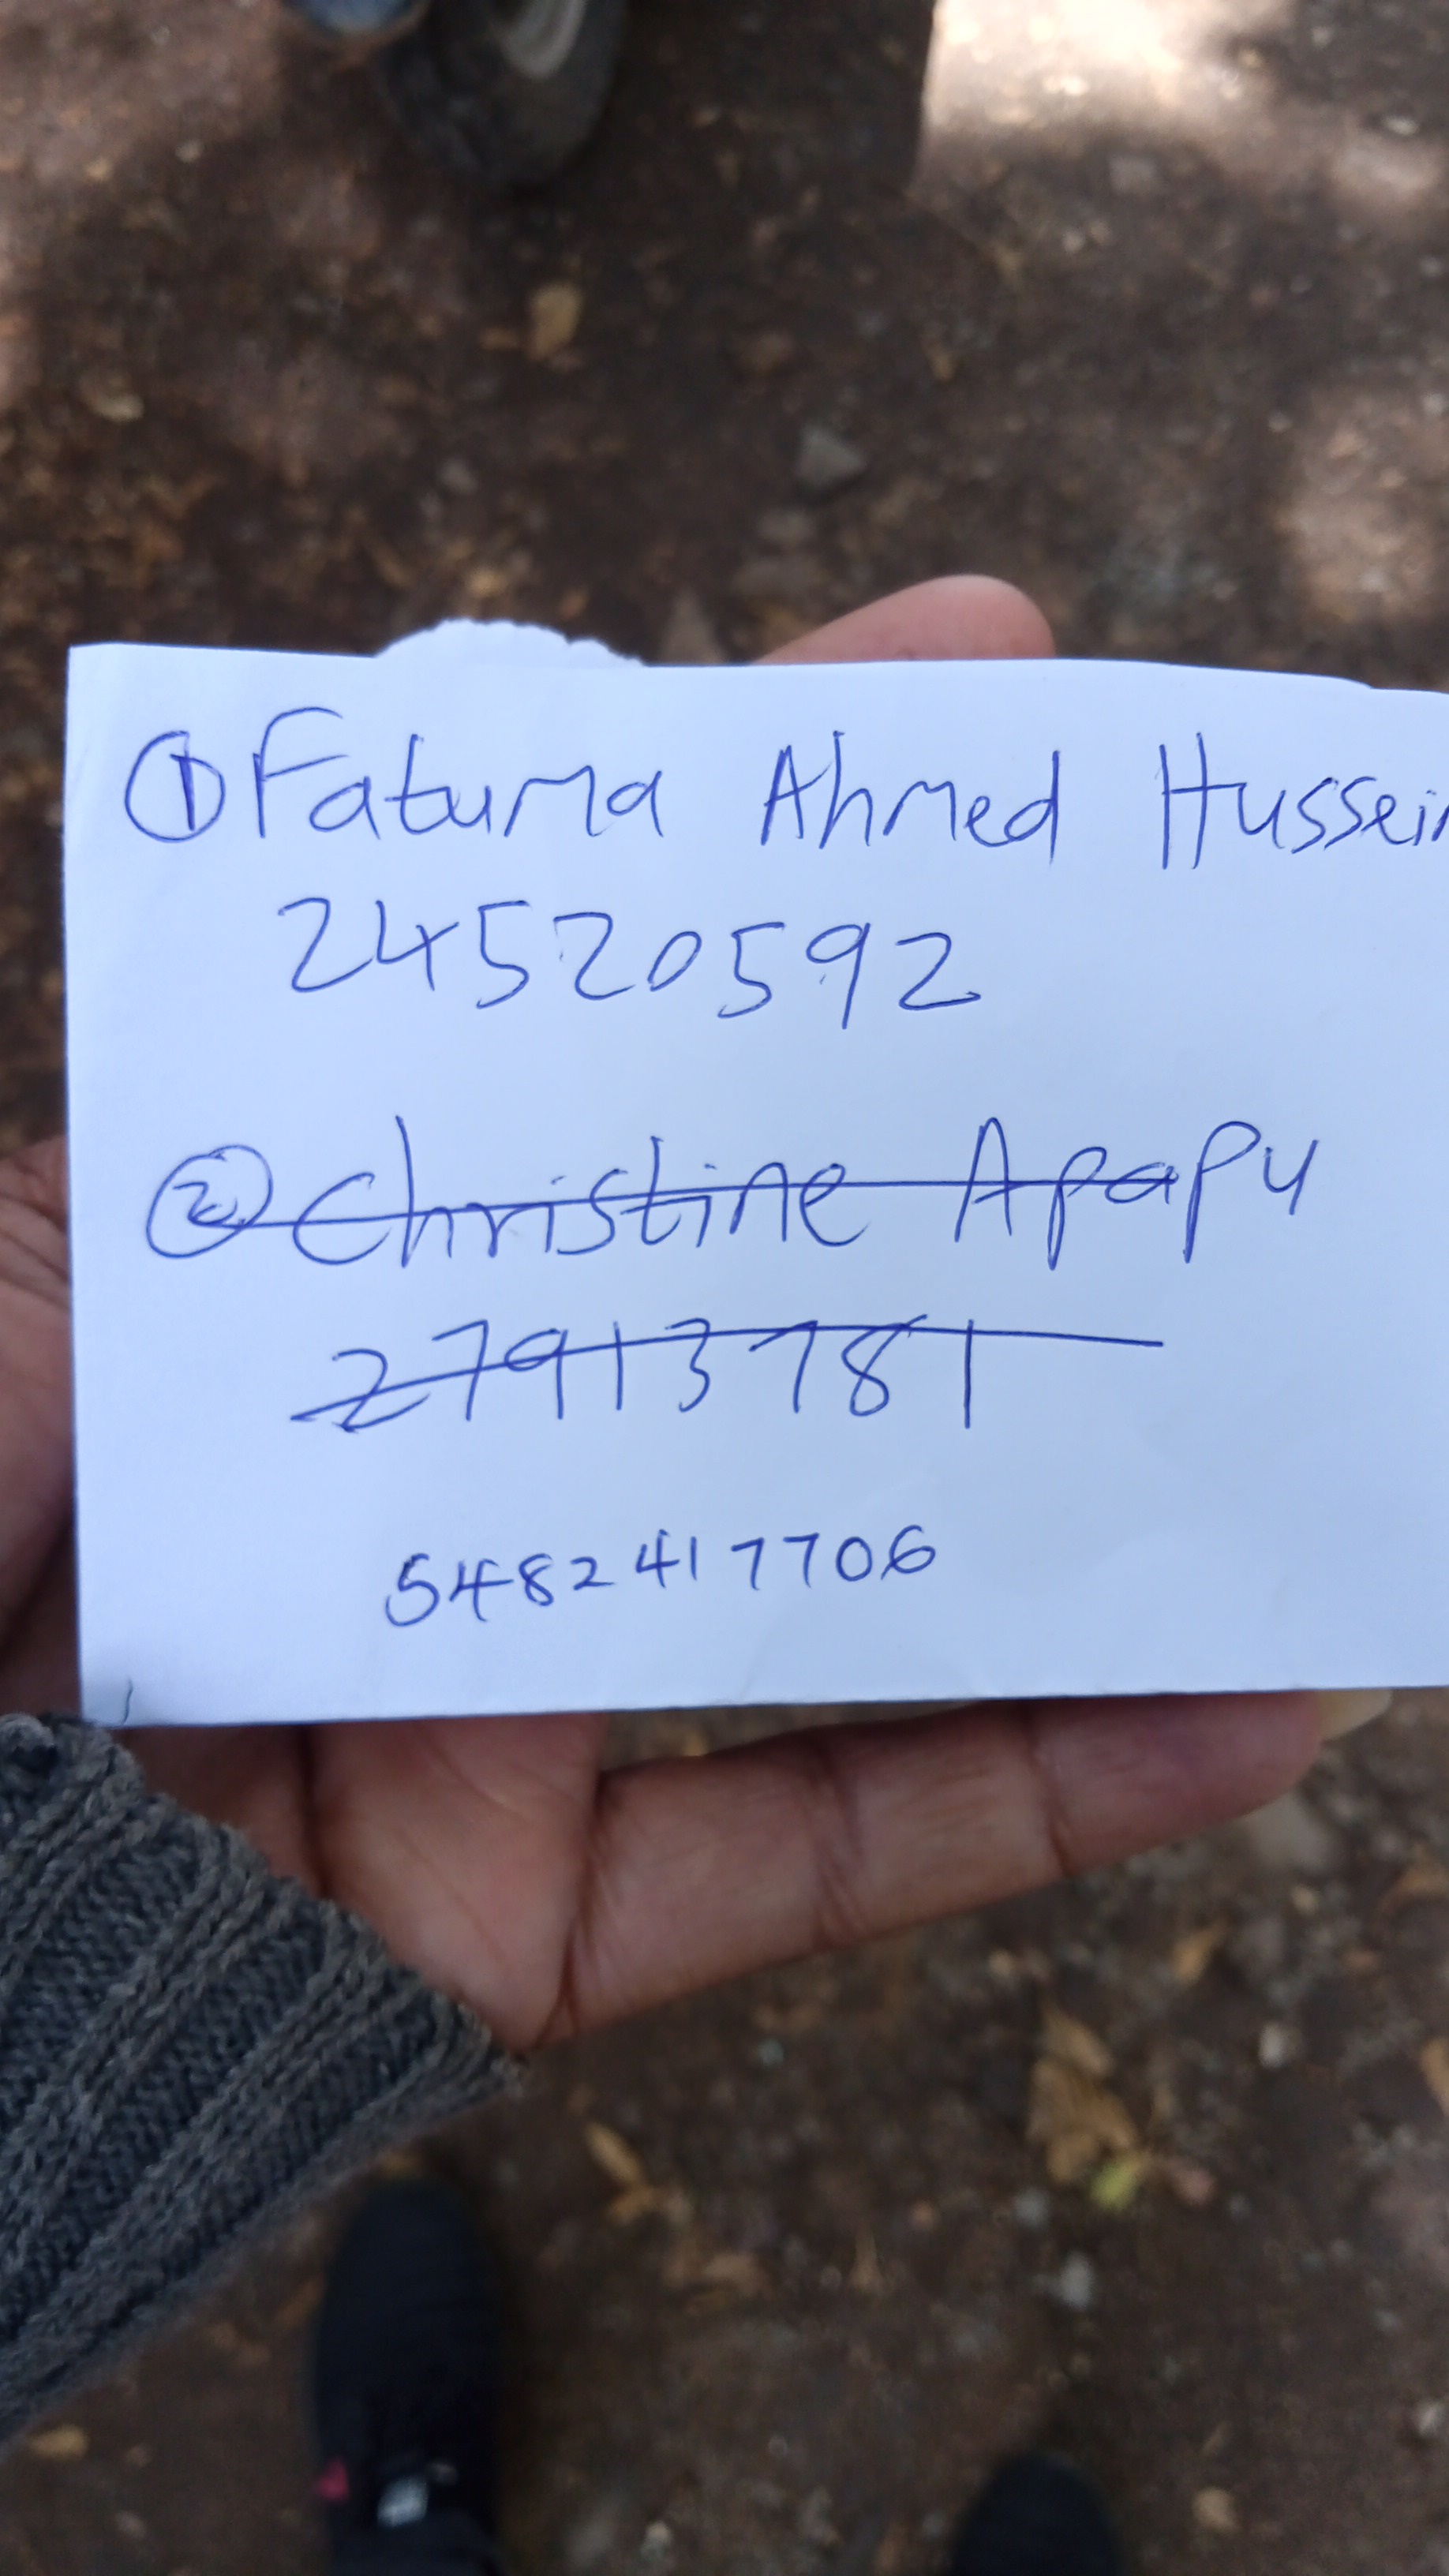 ① Fatuma Ahmed Hussein
24520592
② Christine Apapu
27913781
5482417706